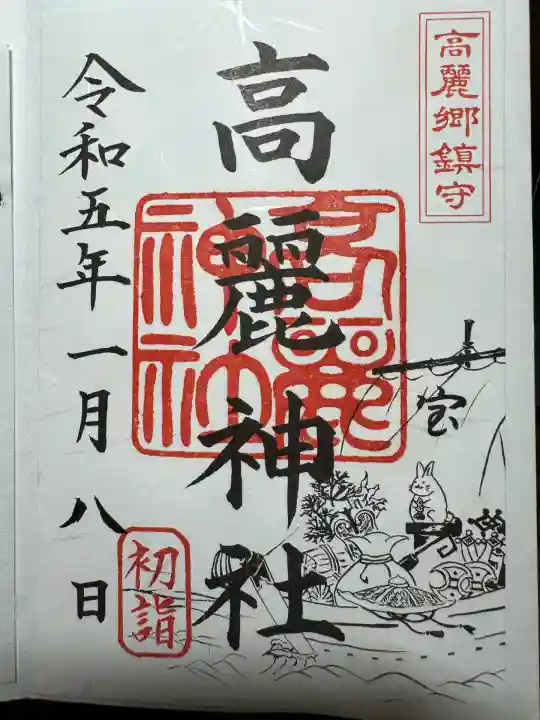 高麗郷鎮守
高麗神社
高麗神社
宝
令和五年一月八日
初詣